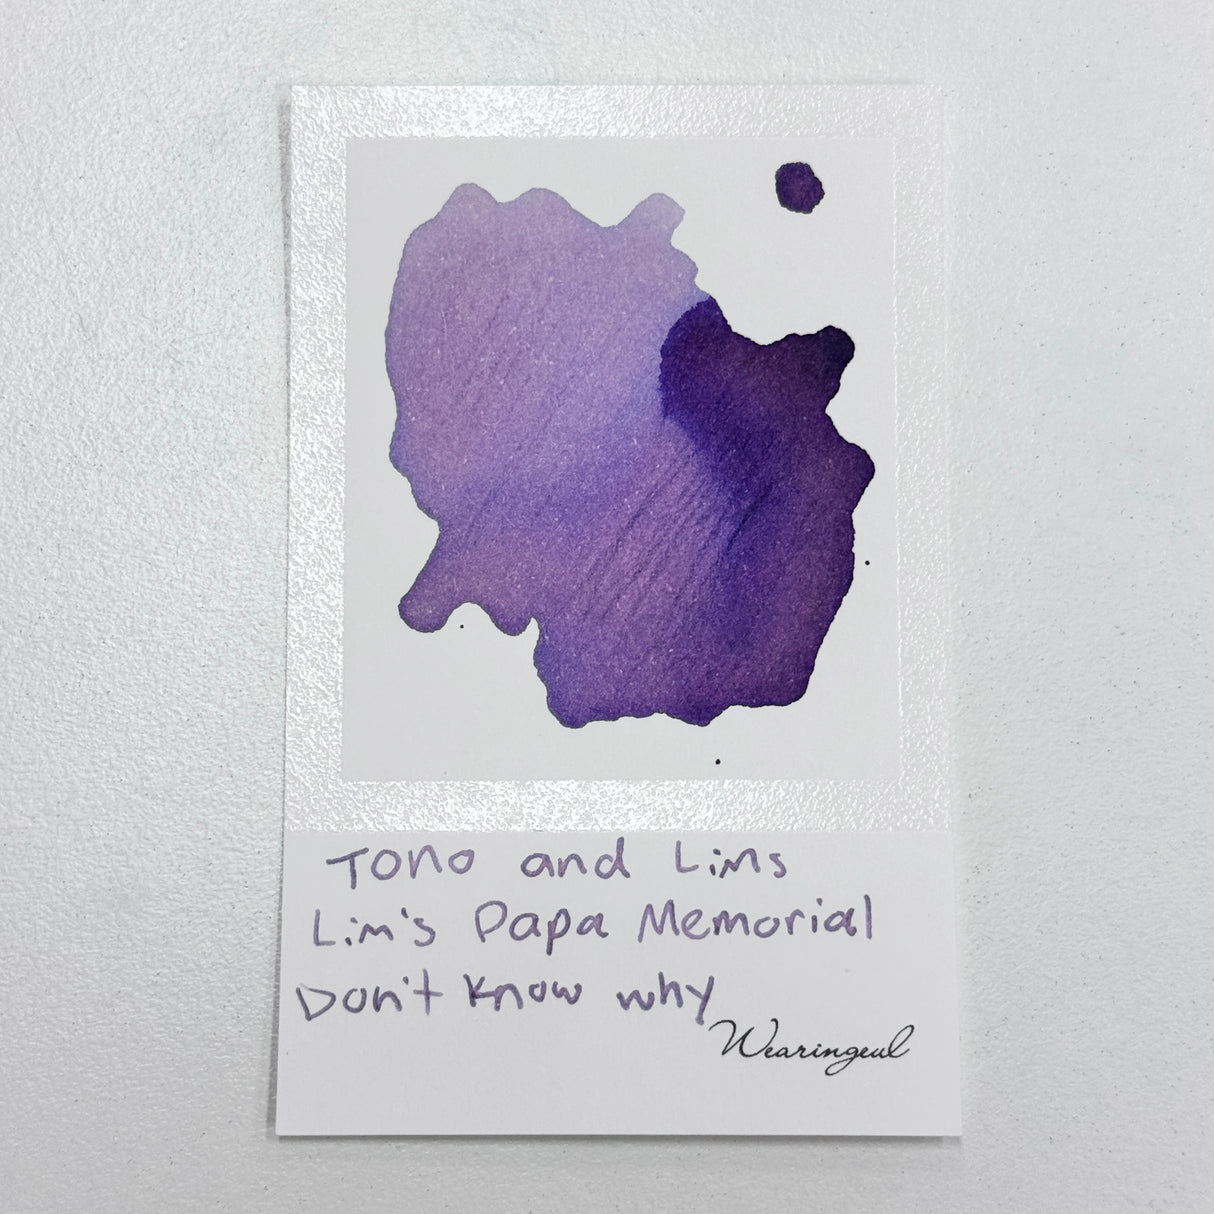 Tono and Lims
Lim's Papa Memorial
Don't know why
Wearingeul